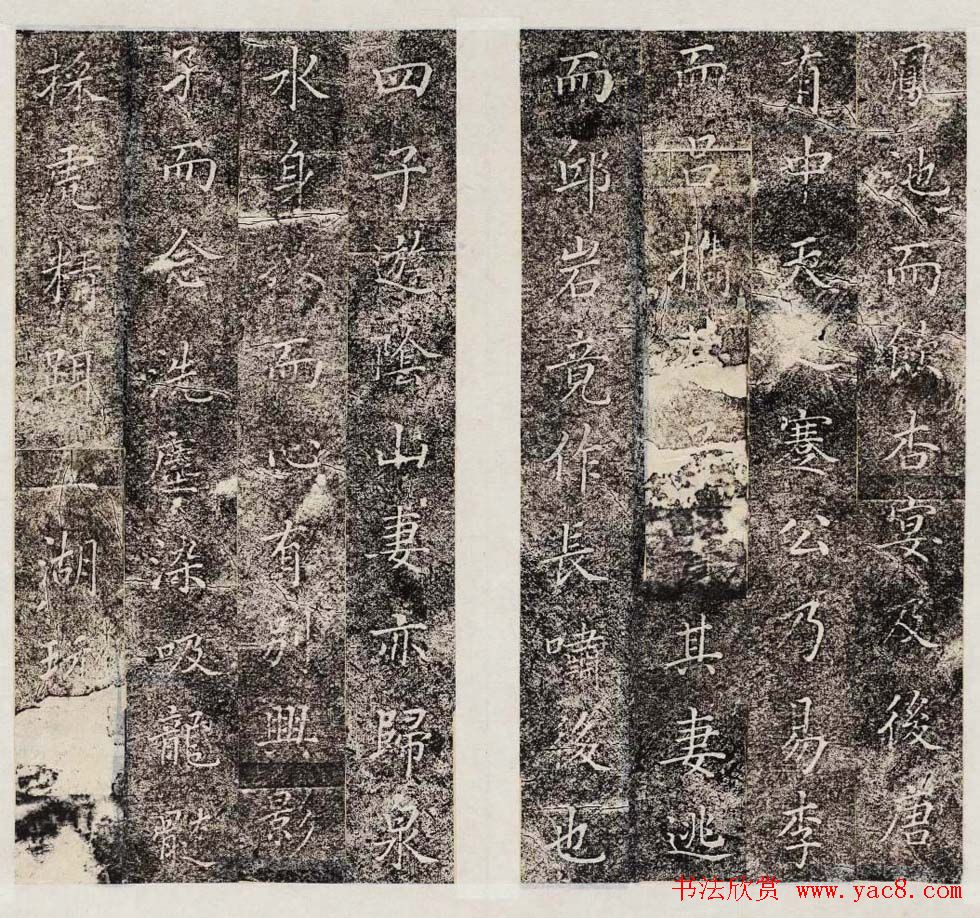 鳳池而飲杏宴及後唐
有中天之蹇公乃易李
而吕携其妻逃
而邱岩竟作長嘯後也
四子遊陰山妻亦歸泉
水身而心有別興影
子而念洗塵染吸龍
採虎精跙湖
书法欣赏 www.yac8.com